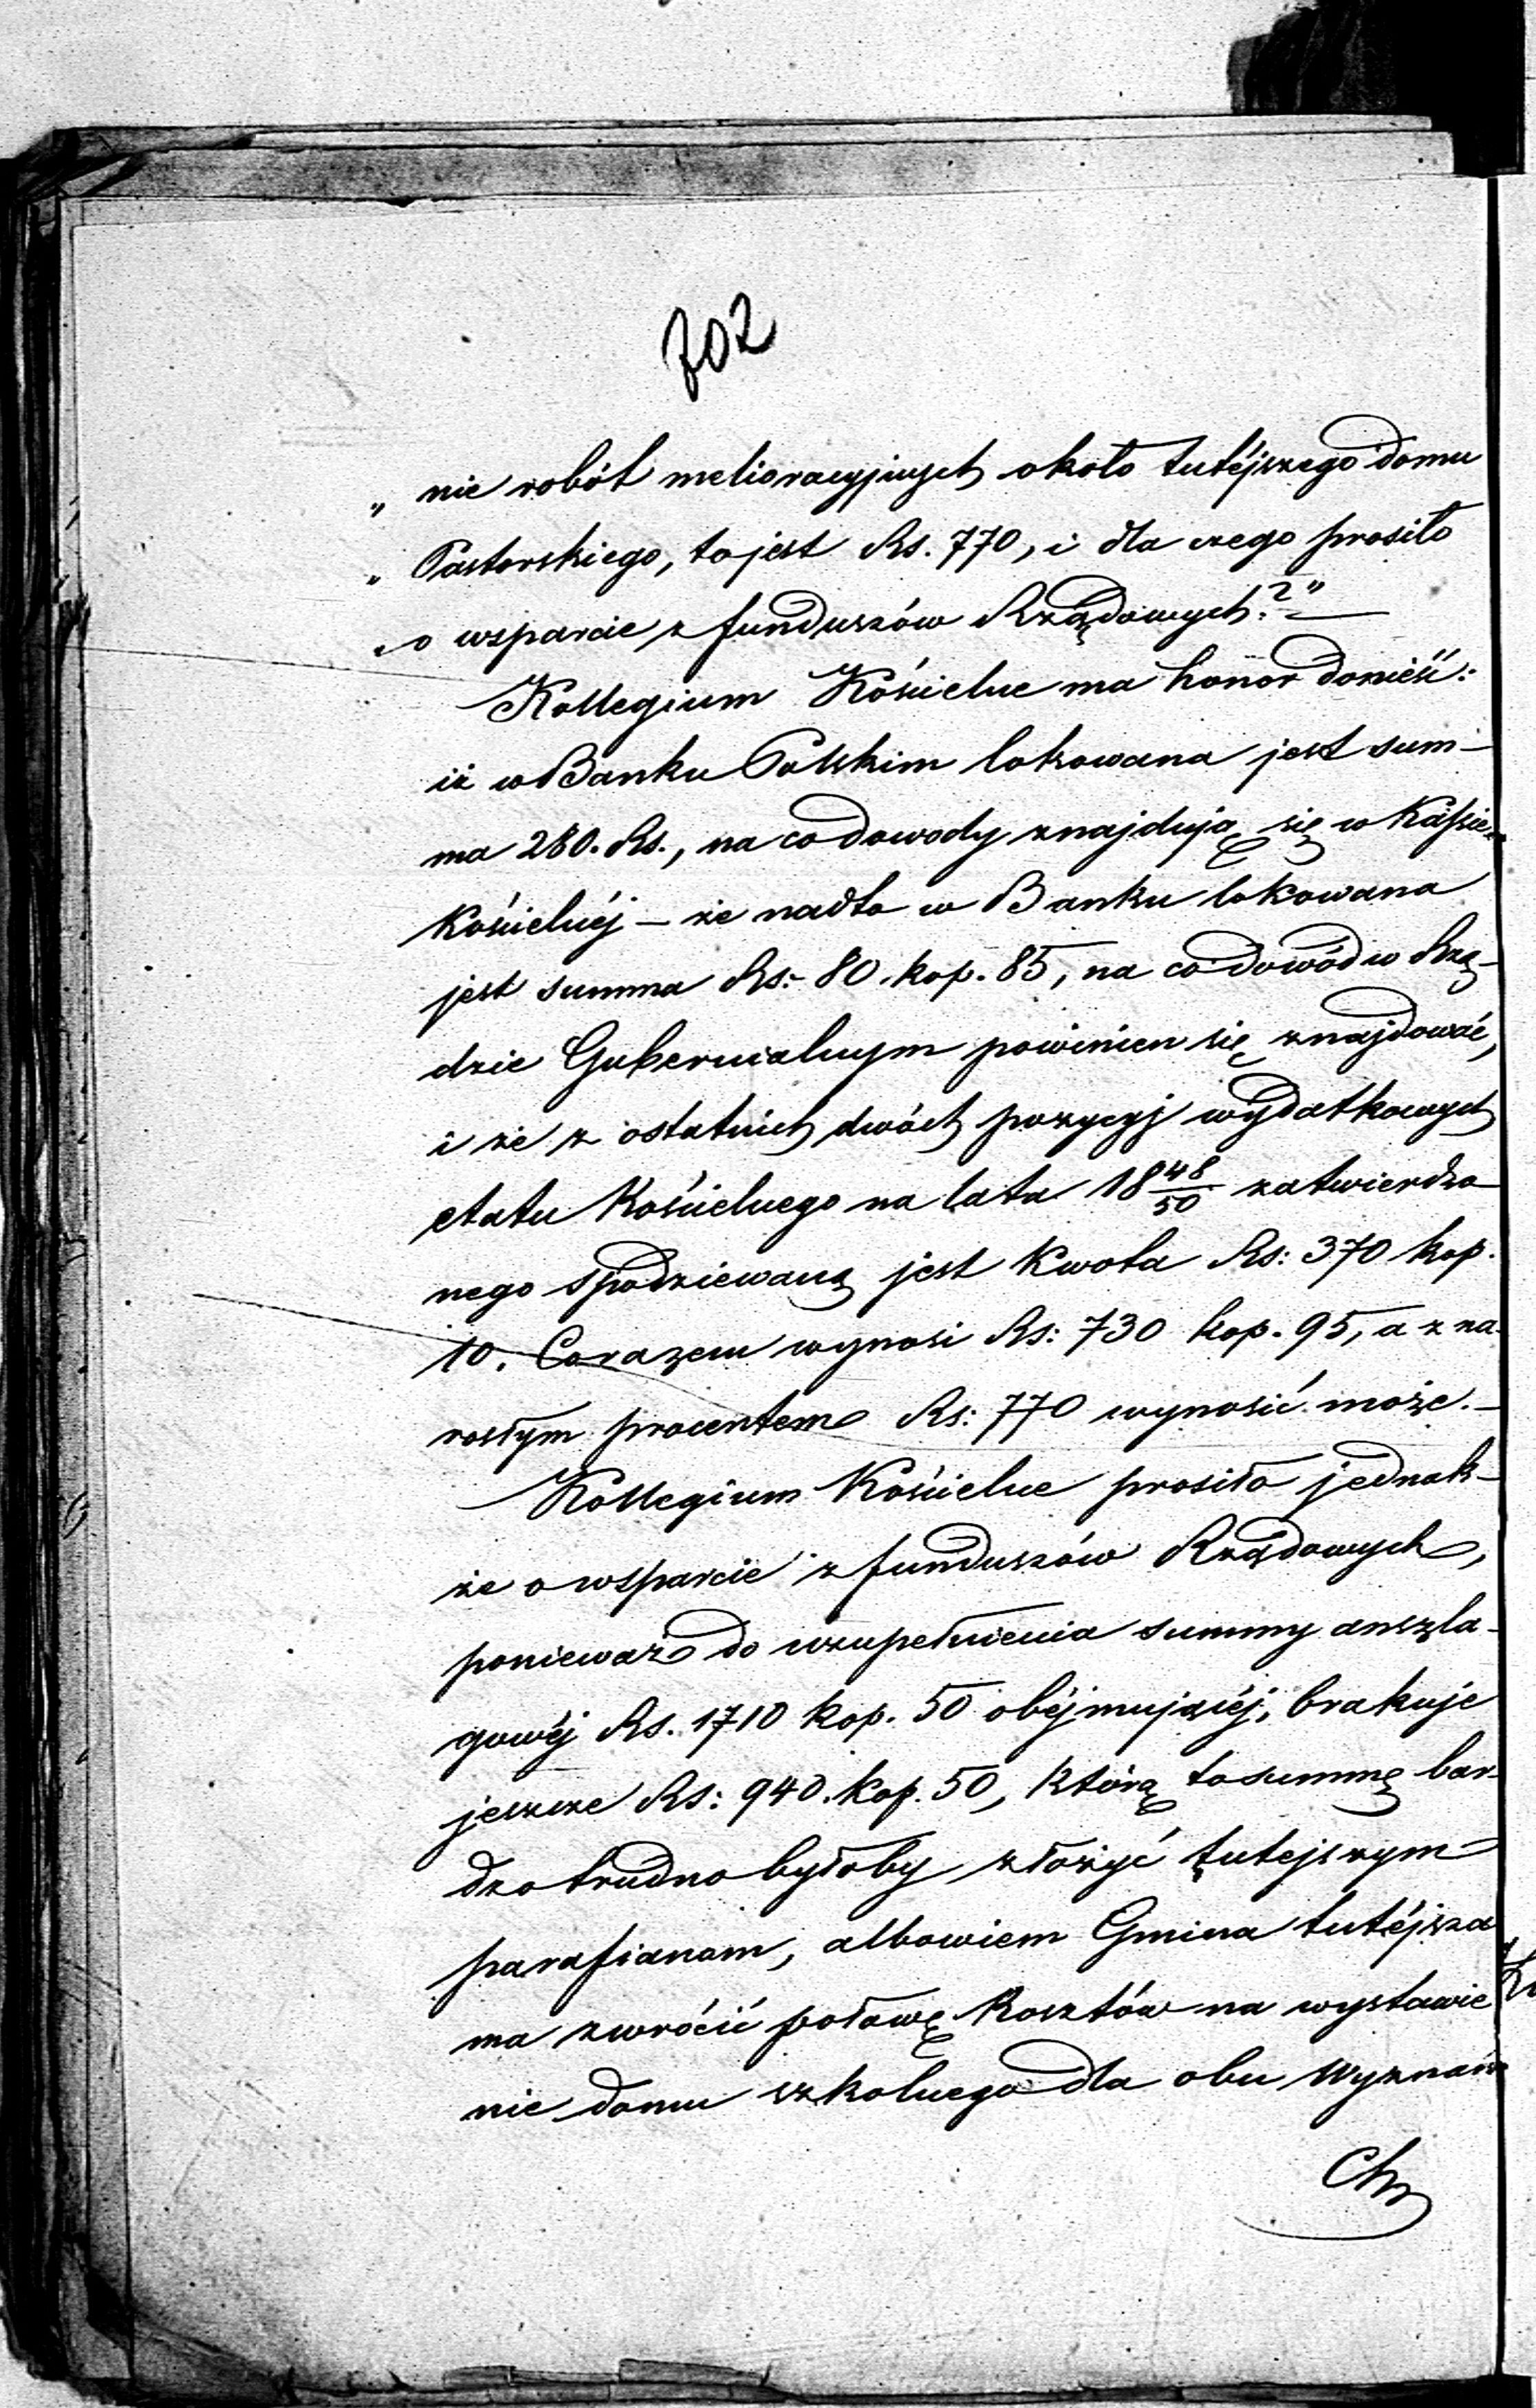 702
„ nie robót melioracyjnych około tutéjszego domu
„ Pastorskiego, to jest Rs. 770, i dla czego prosiło
„ o wsparcie z funduszów Rządowych?"
Kollegium Kościelne ma honor donieść:
iż w Banku Polskim lokowana jest sum-
ma 280. Rs., na co dowody znajdują się w Kassie
Kościelnéj – że nadto w Banku lokowana
jest summa Rs: 80. kop. 85, na co dowód w Rzą-
dzie Gubernialnym powinien się znajdować,
i że z ostatnich dwóch pozycyj wydatkowych
etatu Kościelnego na lata 18 48/50 zatwierdzo
nego spodziewaną jest Kwota Rs: 370 kop.
10. Co razem wynosi Rs: 730 kop. 95, a z na
rosłym procentem Rs: 770 wynosić może. –
Kollegium Kościelne prosiło jednak-
że o wsparcie z funduszów Rządowych,
ponieważ do uzupełnienia summy anszla-
gowéj Rs. 1710 kop. 50 obéjmującéj, brakuje
jeszcze Rs: 940. kop. 50, którą to summę bar-
dzo trudno byłoby złożyć tutejszym
parafianom, albowiem Gmina tutéjsza
ma zwrócić połowę Kosztów na wystawie
nie domu szkolnego dla obu Wyznań